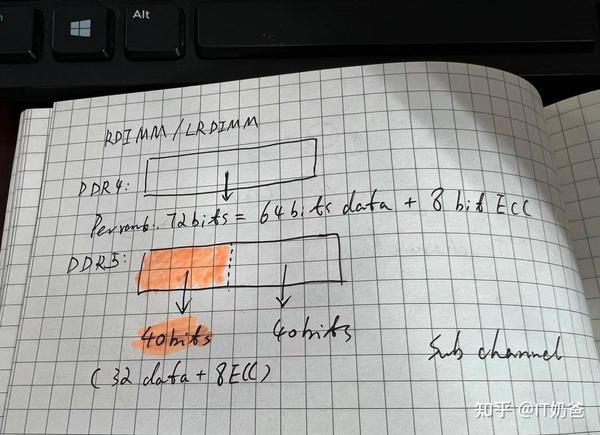 Alt
RDIMM/LRDIMM
DDR4:
Per rank: 72bits = 64bits data + 8 bit ECC
DDR5:
40bits 40bits
(32 data + 8ECC)
Sub channel
知乎 @IT奶爸